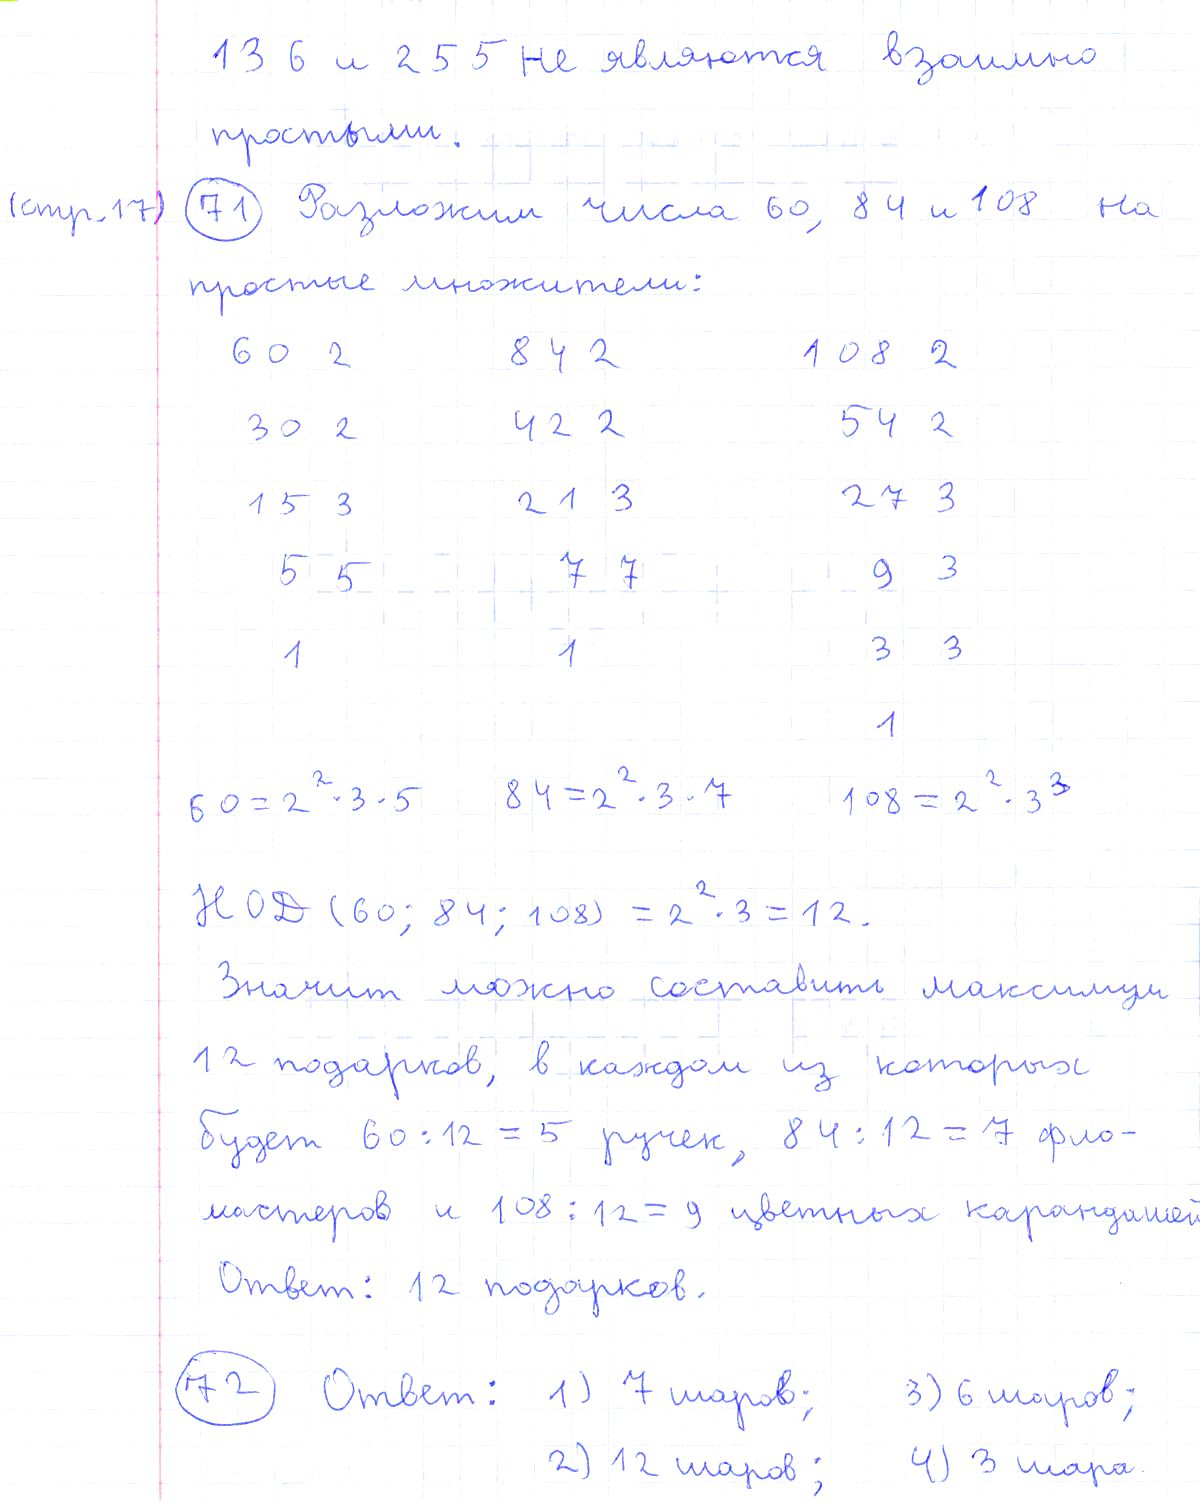 136 и 255 не являются взаимно
простыми.
(стр. 17) 71 Разложим числа 60, 84 и 108 на
простые множители:
60 2 84 2 108 2
30 2 42 2 54 2
15 3 21 3 27 3
5 5 7 7 9 3
1 1 3 3
1
60 = 2² · 3 · 5 84 = 2² · 3 · 7 108 = 2² · 3³
НОД (60; 84; 108) = 2² · 3 = 12.
Значит можно составить максимум
12 подарков, в каждом из которых
будет 60 : 12 = 5 ручек, 84 : 12 = 7 фло-
мастеров и 108 : 12 = 9 цветных карандашей
Ответ: 12 подарков.
72 Ответ: 1) 7 шаров; 3) 6 шаров;
2) 12 шаров; 4) 3 шара.